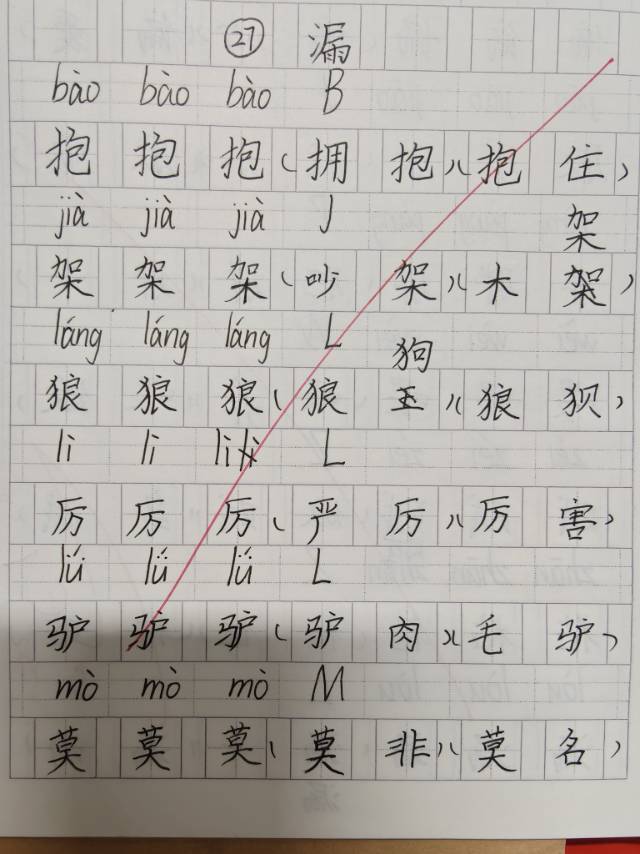 ㉗ 漏
bào bào bào B
抱 抱 抱(拥 抱)(抱 住)
jià jià jià J 架
架 架 架(吵 架)(木 架)
láng láng láng L 狗
狼 狼 狼(狼 王)(狼 狈)
lì lì lì L
厉 厉 厉(严 厉)(厉 害)
lǘ lǘ lǘ L
驴 驴 驴(驴 肉)(毛 驴)
mò mò mò M
莫 莫 莫(莫 非)(莫 名)